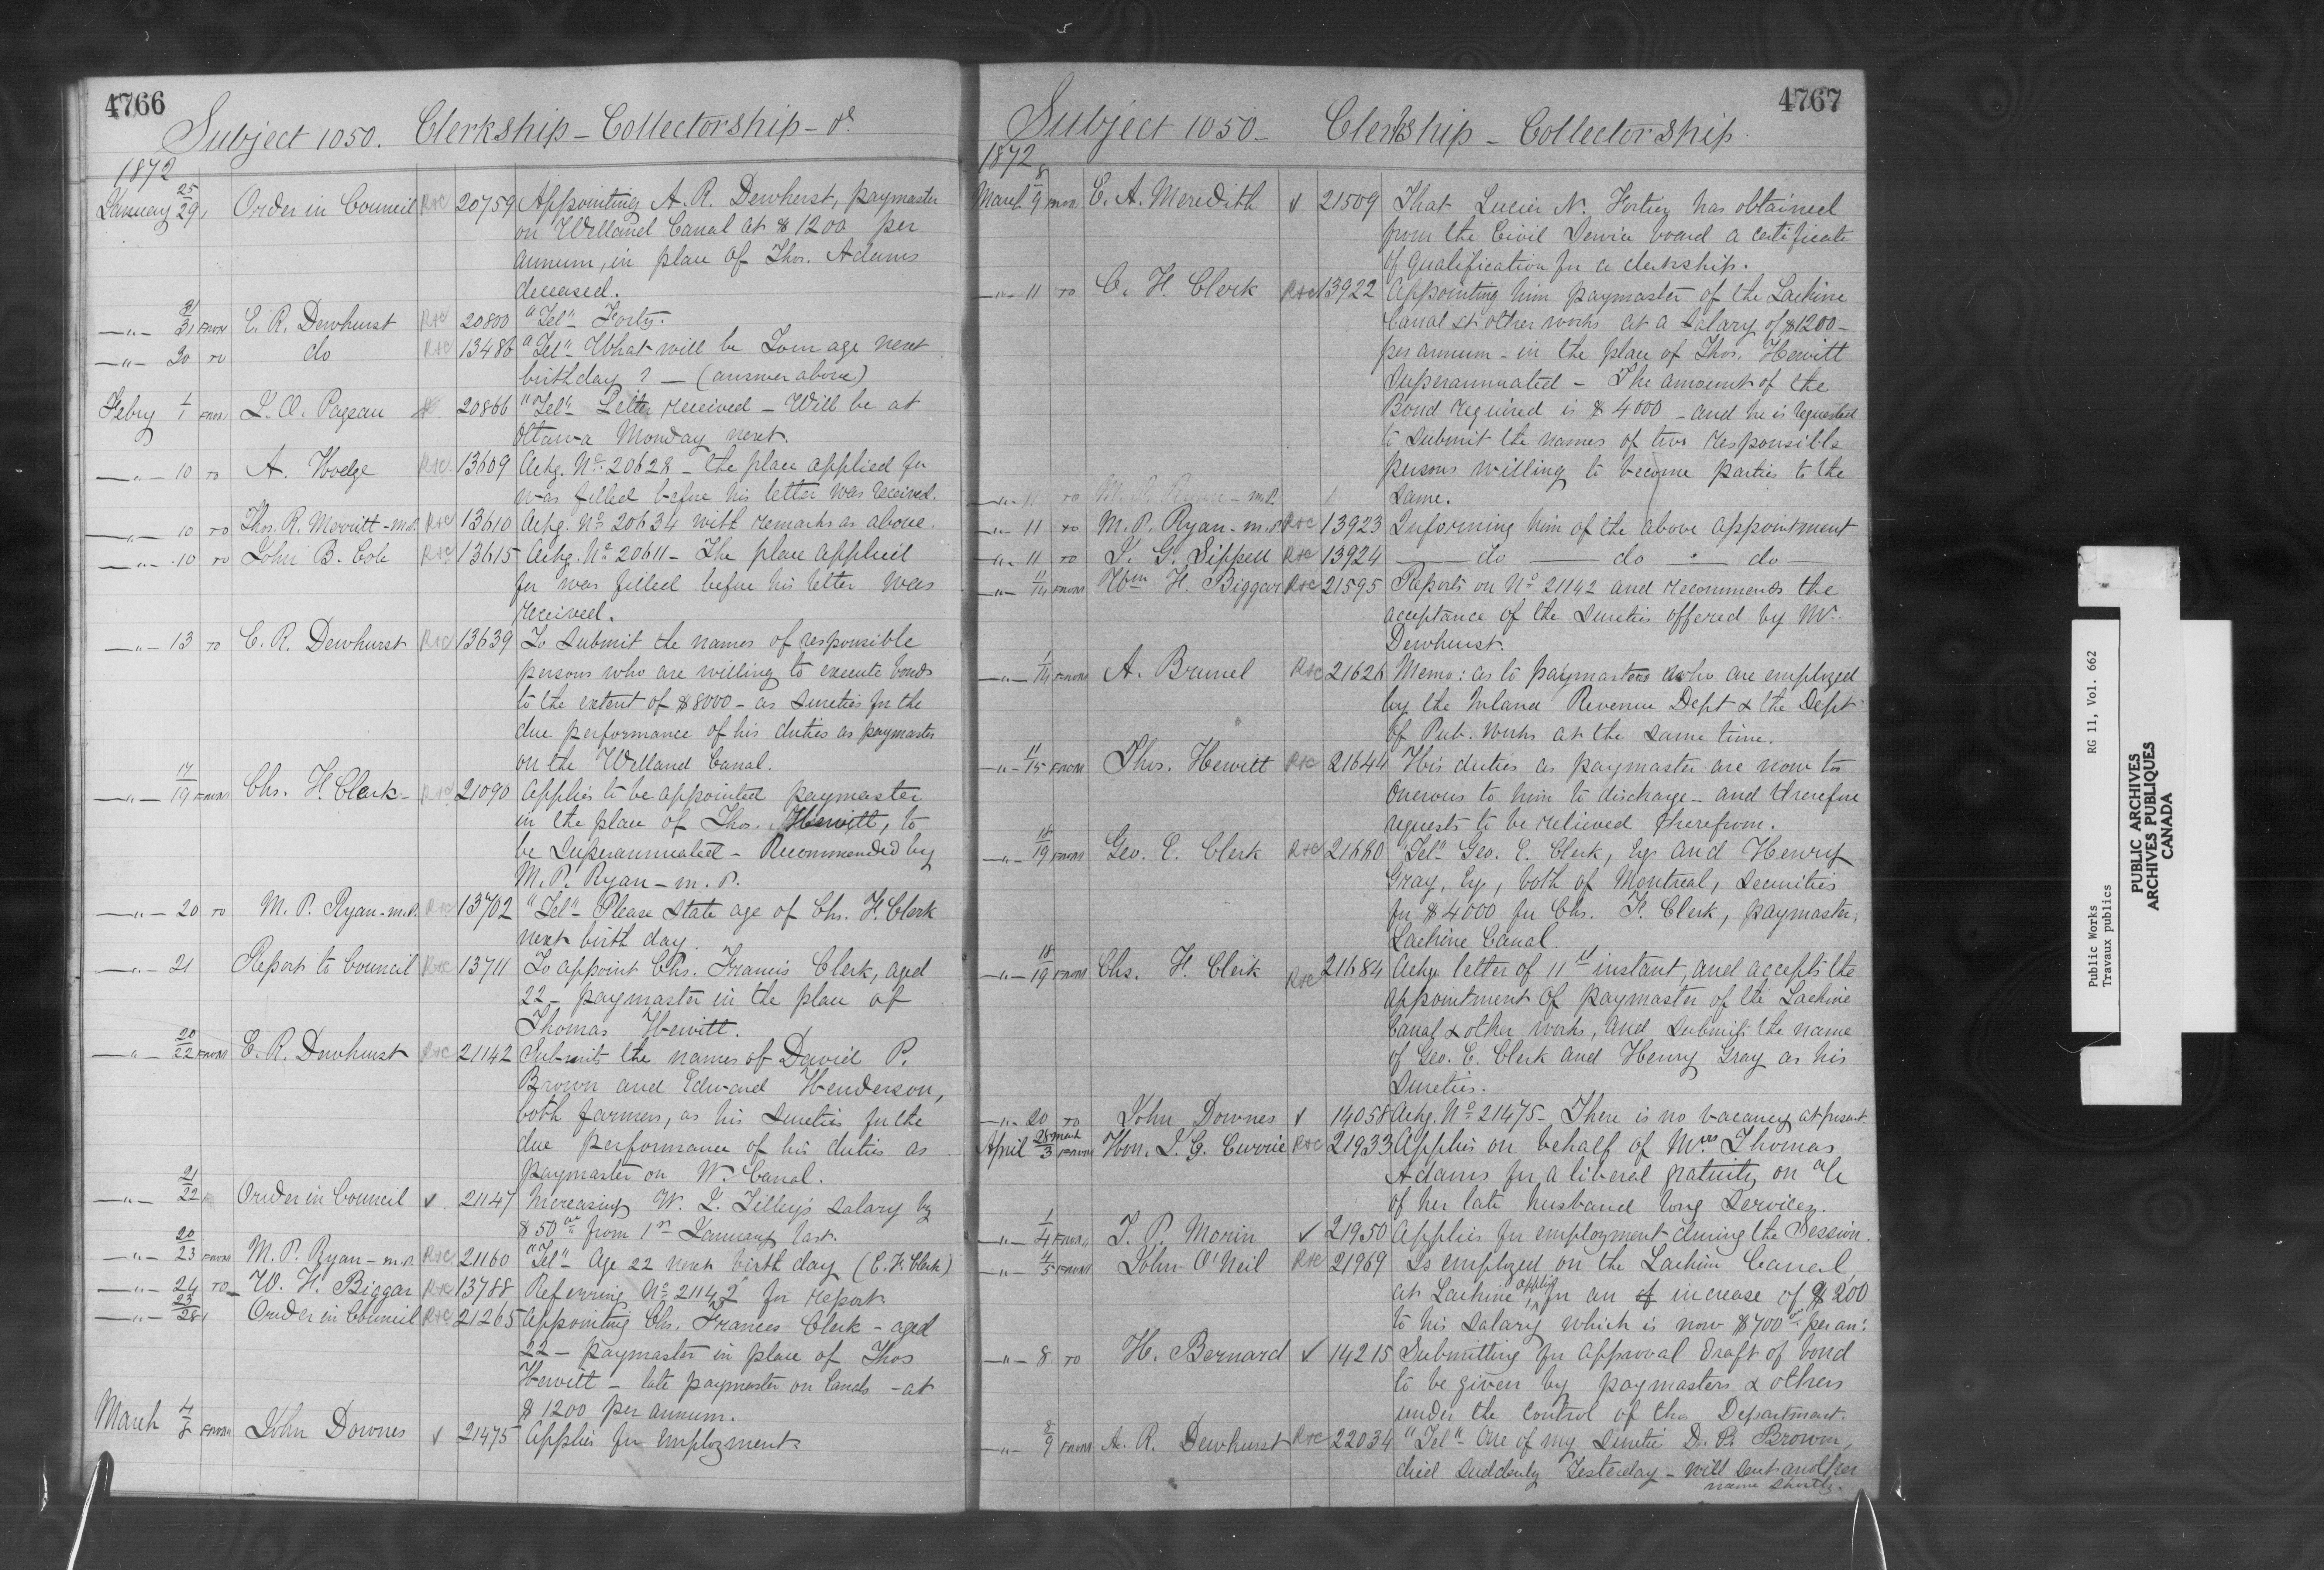 4766
Subject 1050. Clerkship - Collectorship - do
1872
January 25/29 Order in Council R&C 20759 Appointing A. R. Dewhurst, paymaster
on Welland Canal at $1200 per
annum, in place of Thos. Adams
deceased.
-"- 31/31 FROM E. R. Dewhurst R&C 20800 "Tel" Forty.
-"- 30 TO do R&C 13486 "Tel" What will be Your age next
birthday ? - (answer above)
Febry 1/1 FROM L. O. Pageau 20866 "Tel" Letter received - Will be at
Ottawa Monday next.
-"- 10 TO A. Hodge R&C 13609 Ackg. No. 20628 - the place applied for
was filled before his letter was received.
-"- 10 TO Thos. R. Merritt - m.P. R&C 13610 Ackg. No 20634 with remarks as above.
-"- 10 TO John B. Cole R&C 13615 Ackg. No. 20611 - The place applied
for was filled before his letter was
received.
-"- 13 TO E. R. Dewhurst R&C 13639 To submit the names of responsible
persons who are willing to execute bonds
to the extent of $8000 - as sureties for the
due performance of his duties as paymaster
on the Welland Canal.
-"- 17/19 FROM Chs. F. Clerk - R&C 21090 Applies to be appointed paymaster
in the place of Thos. Hewitt, to
be Superannuated - Recommended by
M. P. Ryan - m.P.
-"- 20 TO M. P. Ryan - m.P. R&C 13702 "Tel" Please state age of Chs. F. Clerk
next birth day.
-"- 21 Report to Council R&C 13711 To appoint Chs. Francis Clerk, aged
22 - paymaster in the place of
Thomas Hewitt.
-"- 20/22 FROM E. R. Dewhurst R&C 21142 Submits the names of David P.
Brown and Edward Henderson,
both farmers, as his sureties for the
due performance of his duties as
paymaster on W. Canal.
-"- 21/22 Order in Council ✓ 21147 Increasing W. L. Tilley's salary by
$50 from 1st January last.
-"- 20/23 FROM M. P. Ryan - m.P. R&C 21160 "Tel" Age 22 next birth day (C. F. Clerk)
-"- 24 TO W. H. Biggar R&C 13788 Referring No 21142 for report.
-"- 23/28 Order in Council R&C 21265 Appointing Chs. Frances Clerk - aged
22 - paymaster in place of Thos
Hewitt - late paymaster on Canals - at
$1200 per annum.
March 4/8 FROM John Downes ✓ 21475 Applies for employment.
4767
Subject 1050 - Clerkship - Collectorship.
1872
March 8/9 FROM E. A. Meredith ✓ 21509 That Lucien N. Fortier has obtained
from the Civil Service board a certificate
of qualification for a clerkship.
-"- 11 TO C. F. Clerk R&C 13922 Appointing him paymaster of the Lachine
Canal & other works at a salary of $1200 -
per annum - in the place of Thos. Hewitt
Superannuated - The amount of the
Bond required is $4000 - and he is requested
to submit the names of two responsible
persons willing to become parties to the
same.
-"- 11 TO M. P. Ryan - m.P.
-"- 11 TO M. P. Ryan - m.P. R&C 13923 Informing him of the above appointment
-"- 11 TO J. G. Sippell R&C 13924 - do - do - do -
-"- 11/14 FROM Wm H. Biggar R&C 21595 Reports on No 21142 and recommends the
acceptance of the sureties offered by Mr.
Dewhurst.
-"- 1/14 FROM A. Brunel R&C 21626 Memo: as to paymasters who are employed
by the Inland Revenue Dept & the Dept
of Pub. Works at the same time.
-"- 11/15 FROM Thos. Hewitt R&C 21644 His duties as paymaster are now too
onerous to him to discharge - and therefore
requests to be relieved therefrom.
-"- 18/19 FROM Geo. E. Clerk R&C 21680 "Tel" Geo. E. Clerk, Esq and Henry
Gray, Esq, both of Montreal, securities
for $4000 for Chs. F. Clerk, paymaster,
Lachine Canal.
-"- 18/19 FROM Chs. F. Clerk R&C 21684 Ackg. letter of 11th instant, and accepts the
appointment of paymaster of the Lachine
Canal & other works, and submits the name
of Geo. E. Clerk and Henry Gray as his
sureties.
-"- 20 TO John Downes ✓ 14058 Ackg. No 21475 - There is no vacancy at present.
April 28 March/3 FROM Hon. J. G. Currie R&C 21933 Applies on behalf of Mrs Thomas
Adams for a liberal gratuity on a/c
of her late husband long services.
-"- 1/4 FROM J. P. Morin ✓ 21950 Applies for employment during the Session.
-"- 4/5 FROM John O'Neil R&C 21969 Is employed on the Lachine Canal,
at Lachine, applies for an of increase of $200
to his salary which is now $700 per an:
-"- 8 TO H. Bernard ✓ 14215 Submitting for approval draft of bond
to be given by paymasters & others
under the control of the Department.
-"- 8/9 FROM A. R. Dewhurst R&C 22034 "Tel" - One of my sureties D. P. Brown,
died suddenly Yesterday - will sent another
name shortly.
Public Works RG 11, Vol. 662
Travaux publics
PUBLIC ARCHIVES
ARCHIVES PUBLIQUES
CANADA